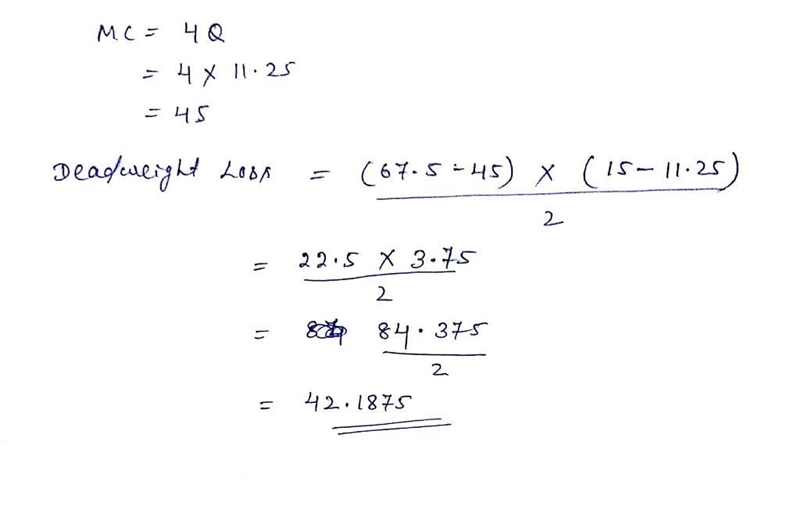 MC = 4Q
= 4 × 11.25
= 45
Deadweight Loss = (67.5 - 45) × (15 - 11.25)
2
= 22.5 × 3.75
2
= 84.375
2
= 42.1875